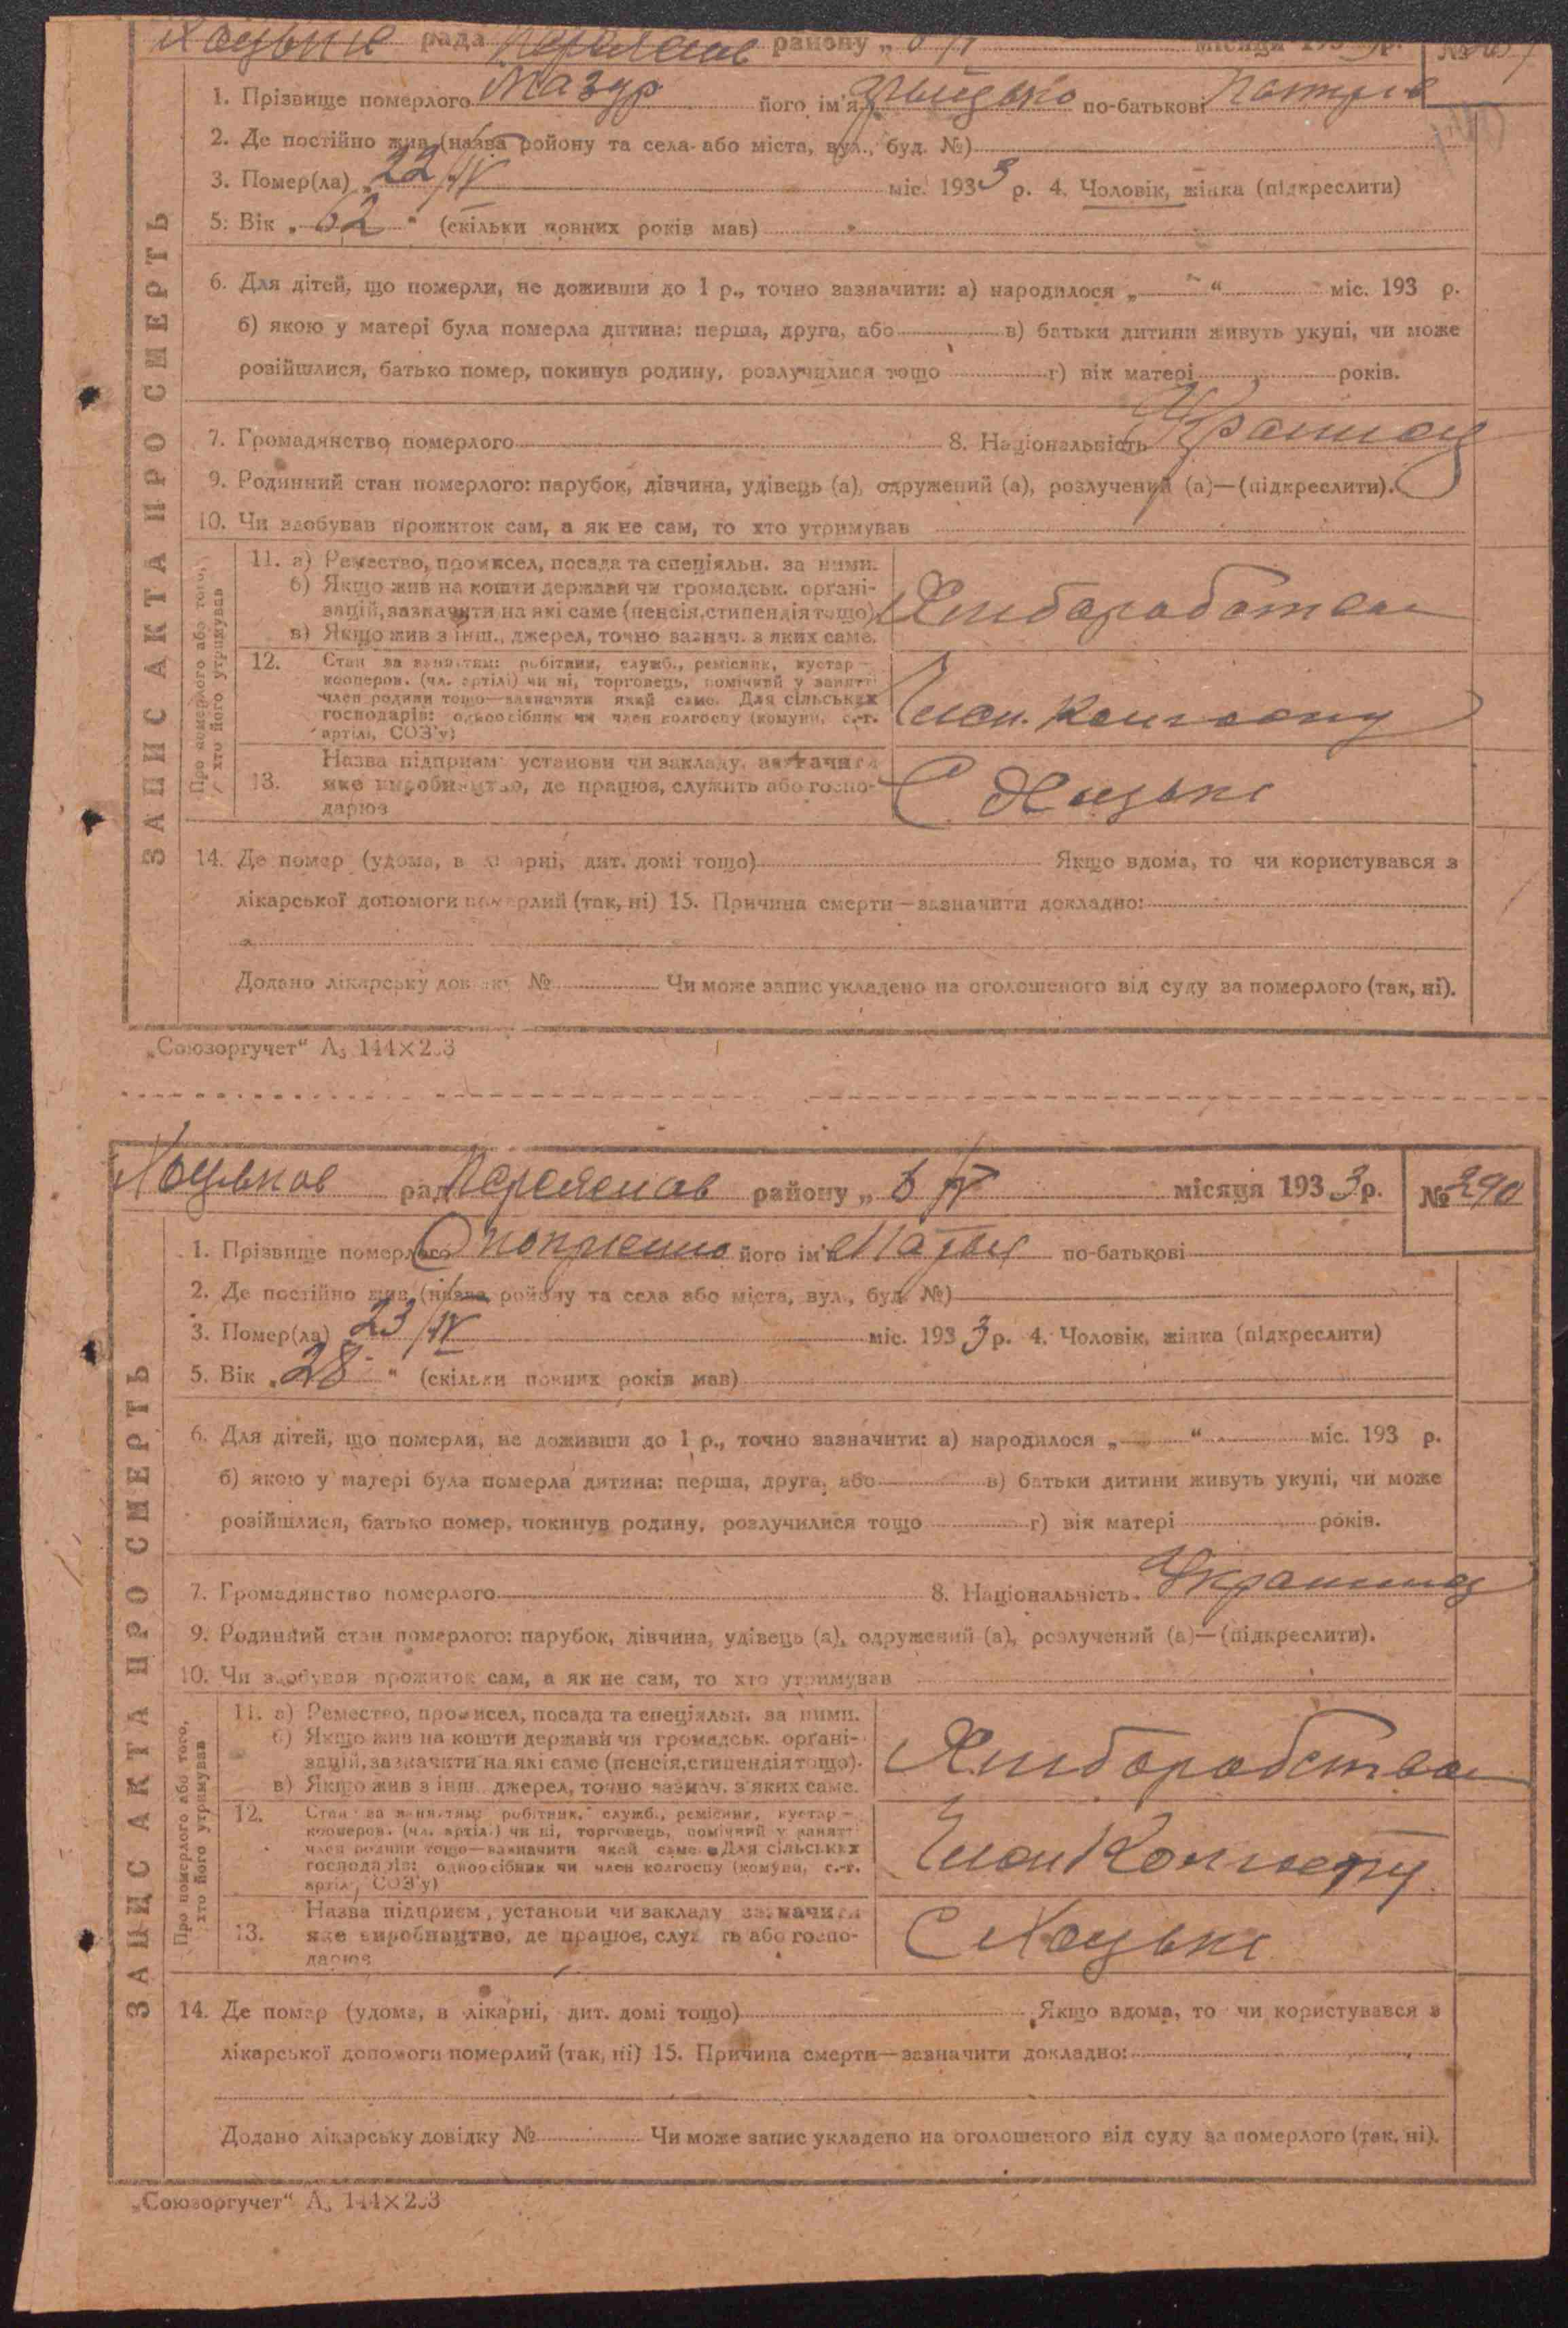 рада району „ місяця 193 р. №
1. Прізвище померлого Мазур його ім'я Грицько по-батькові
2. Де постійно жив (назва ройону та села або міста, вул., буд. №)
3. Помер(ла) „ 22/IV міс. 1933 р. 4. Чоловік, жінка (підкреслити)
5. Вік „ 62 “ (скільки повних років мав)
6. Для дітей, що померли, не доживши до 1 р., точно зазначити: а) народилося „ “ міс. 193 р.
б) якою у матері була померла дитина: перша, друга, або в) батьки дитини живуть укупі, чи може
розійшлися, батько помер, покинув родину, розлучилися тощо г) вік матері років.
7. Громадянство померлого 8. Національність
9. Родинний стан померлого: парубок, дівчина, удівець (а), одружений (а), розлучений (а)—(підкреслити).
10. Чи здобував прожиток сам, а як не сам, то хто утримував
ЗАПИС АКТА ПРО СМЕРТЬ
Про померлого або того,
хто його утримував
11. а) Ремество, промисел, посада та спеціяльн. за ними.
б) Якщо жив на кошти держави чи громадськ. органі-
зацій, зазначити на які саме (пенсія, стипендія тощо).
в) Якщо жив з інш., джерел, точно зазнач. з яких саме.
12. Стан за заняттям: робітник, служб., ремісник, кустар —
кооперов. (чл. артілі) чи ні, торговець, помічний у занятті
член родини тощо—зазначити який саме. Для сільських
господарів: одноосібник чи член колгоспу (комуни, с.-г.
артілі, СОЗ'у)
Член. Колгоспу
Назва підприєм. установи чи закладу, зазначити
13. яке виробництво, де працює, служить або госпо-
дарює
С Хоцьки
14. Де помер (удома, в лікарні, дит. домі тощо) Якщо вдома, то чи користувався з
лікарської допомоги померлий (так, ні) 15. Причина смерти—зазначити докладно:
Додано лікарську довідку № Чи може запис укладено на оголошеного від суду за померлого (так, ні).
„Союзоргучет“ А₅ 144×203
Хоцьков рад Переяслав району „ 6/IV місяця 1933 р. № 290
1. Прізвище померлого його ім'я Матвій по-батькові
2. Де постійно жив (назва ройону та села або міста, вул., буд. №)
3. Помер(ла) 23/IV міс. 1933 р. 4. Чоловік, жінка (підкреслити)
5. Вік „ 28 “ (скільки повних років мав)
6. Для дітей, що померли, не доживши до 1 р., точно зазначити: а) народилося „ “ міс. 193 р.
б) якою у матері була померла дитина: перша, друга, або в) батьки дитини живуть укупі, чи може
розійшлися, батько помер, покинув родину, розлучилися тощо г) вік матері років.
7. Громадянство померлого 8. Національність
9. Родинний стан померлого: парубок, дівчина, удівець (а), одружений (а), розлучений (а)—(підкреслити).
10. Чи здобував прожиток сам, а як не сам, то хто утримував
ЗАПИС АКТА ПРО СМЕРТЬ
Про померлого або того,
хто його утримував
11. а) Ремество, промисел, посада та спеціяльн. за ними.
б) Якщо жив на кошти держави чи громадськ. органі-
зацій, зазначити на які саме (пенсія, стипендія тощо).
в) Якщо жив з інш. джерел, точно зазнач. з яких саме.
12. Стан за заняттям: робітник, служб., ремісник, кустар —
кооперов. (чл. артілі) чи ні, торговець, помічний у занятті
член родини тощо—зазначити який саме. Для сільських
господарів: одноосібник чи член колгоспу (комуни, с.-г.
артілі, СОЗ'у)
Член Колгоспу
Назва підприєм., установи чи закладу зазначити
13. яке виробництво, де працює, служить або госпо-
дарює
С Хоцьки
14. Де помер (удома, в лікарні, дит. домі тощо) Якщо вдома, то чи користувався з
лікарської допомоги померлий (так, ні) 15. Причина смерти—зазначити докладно:
Додано лікарську довідку № Чи може запис укладено на оголошеного від суду за померлого (так, ні).
„Союзоргучет“ А₅ 144×203